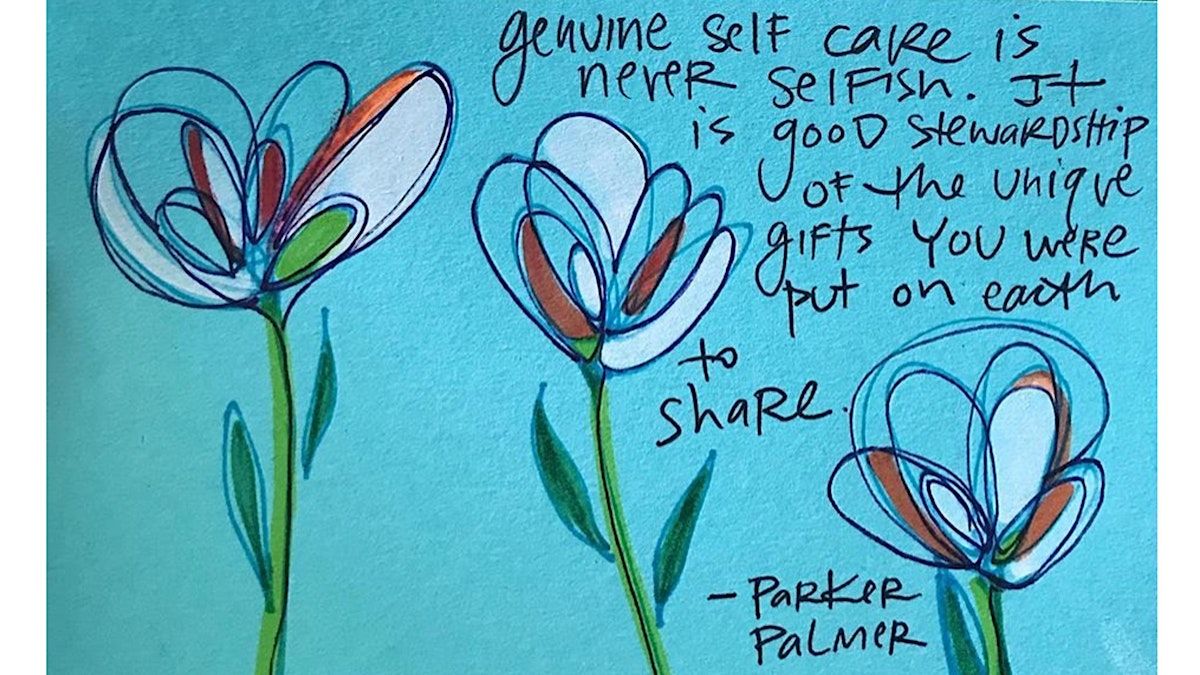 genuine self care is
never selfish. It
is good stewardship
of the unique
gifts you were
put on earth
to
share.
- Parker
Palmer